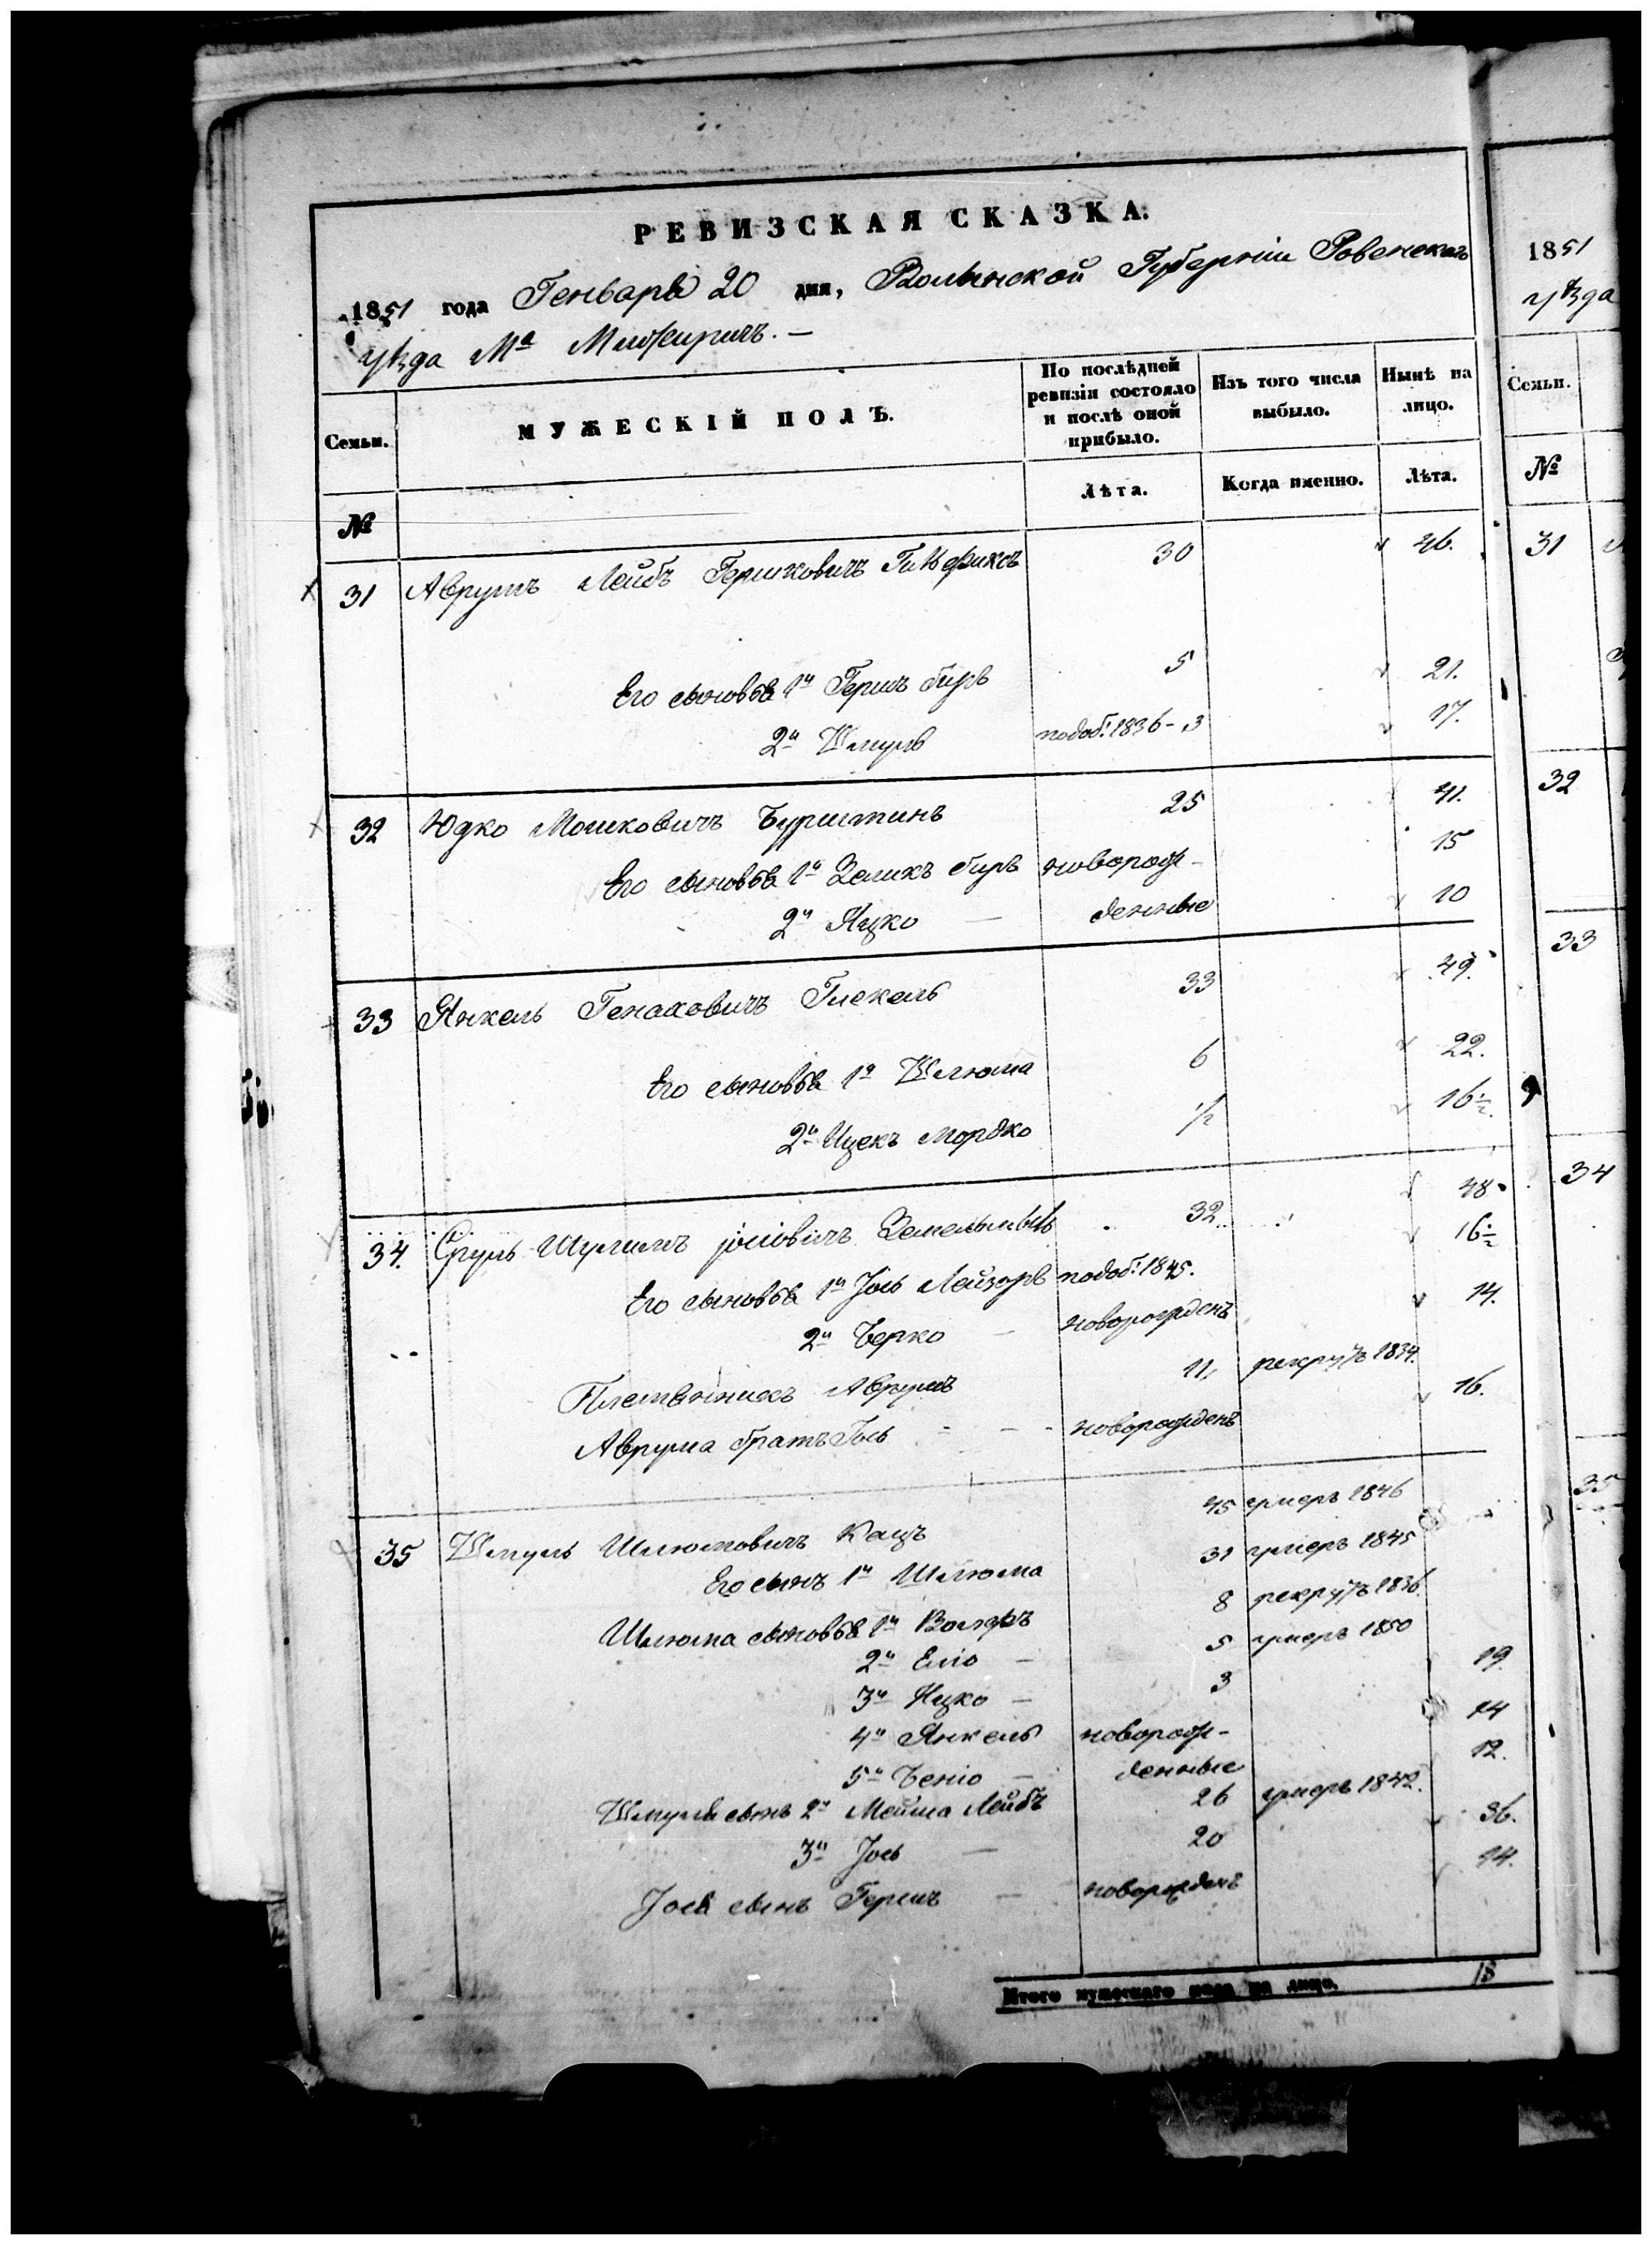 РЕВИЗСКАЯ СКАЗКА.
1851 года Генваря 20 дня, Волынской Губерніи Ровенскаго
уѣзда Мᵃ Межиричъ. —
Семьи.
МУЖЕСКІЙ ПОЛЪ.
По послѣдней ревизіи состояло и послѣ оной прибыло.
Изъ того числа выбыло.
Нынѣ на лицо.
№
Лѣта.
Когда именно.
Лѣта.
31 Аврумъ Лейбъ Гершковичъ 30 46.
Его сыновья 1й Гершъ беръ 5 21.
2й Шмуль подоб: 1836 - 3 17.
32 Юдко Мошковичъ Бурштинъ 25 41.
Его сыновья 1й Зелихъ беръ новорож- 15
2й Ицко — денные 10
33 Янкель Генаховичъ 33 49.
Его сыновья 1й Шлюма 6 22.
2й Ицекъ Мордко 1/2 16 1/2.
34. Сруль Шулимъ Іосіовичъ 32. 48.
Его сыновья 1й Іось Лейзоръ подоб: 1845. 16 1/2
2й Берко — новорожденъ 14.
Племянникъ Аврумъ 11, рекрутъ 1834.
Аврума братъ Іось - - - новорожденъ 16.
35 Шмуль Шлюмовичъ Кацъ 45 умеръ 1846
Его сынъ 1й Шлюма 31 умеръ 1845
Шлюма сыновья 1й Волфъ 8 рекрутъ 1836.
2й Еліо — 5 умеръ 1850
3й Ицко — 3 19.
4й Янкель новорож- 14
5й Беніо — денные 12.
Шмуля сынъ 2й Лейбъ 26 умеръ 1842.
3й Іось — 20 36.
Іося сынъ Гершъ — новорожденъ 14.
Итого мужескаго пола на лицо. 18
1851
уѣзда
Семьи.
№
31
32
33
34
35